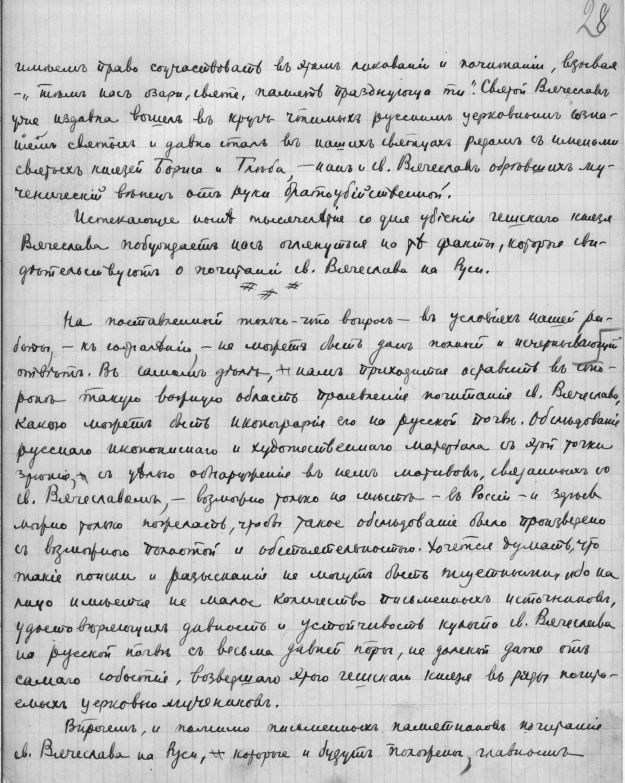 28
имѣемъ право соучаствовать въ этомъ ликованіи и почитаніи, взывая
-„тѣмъ насъ озари, святе, память празднующа ти". Святой Вячеславъ
уже издавна вошелъ въ кругъ чтимыхъ русскимъ церковнымъ созна-
ніемъ святыхъ и давно сталъ въ нашихъ святцахъ рядомъ съ именами
святыхъ князей Бориса и Глѣба, – какъ и св. Вячеславъ обрѣвшихъ му-
ченическій вѣнецъ отъ руки братоубійственной.
Истекающее нынѣ тысячелѣтіе со дня убіенія чешскаго князя
Вячеслава побуждаетъ насъ оглянуться на тѣ факты, которые сви-
дѣтельствуютъ о почитаніи св. Вячеслава на Руси.
На поставленный только-что вопросъ – въ условіяхъ нашей ра-
боты, – къ сожалѣнію, – не можетъ быть данъ полный и исчерпывающій
отвѣтъ. Въ самомъ дѣлѣ, намъ приходится оставить въ сто-
ронѣ такую важную область проявленія почитанія св. Вячеслава,
какою можетъ быть иконографія его на русской почвѣ. Обслѣдованіе
русскаго иконописнаго и художественнаго матеріала съ этой точки
зрѣнія, съ цѣлью обнаруженія въ немъ мотивовъ, связанныхъ со
св. Вячеславомъ, – возможно только на мѣстѣ – въ Россіи – и здѣсь
можно только пожелать, чтобы такое обслѣдованіе было произведено
съ возможною полнотой и обстоятельностью. Хочется думать, что
такіе поиски и разысканія не могутъ быть тщетными, ибо на
лицо имѣется не малое количество письменныхъ источниковъ,
удостовѣряющихъ давность и устойчивость культа св. Вячеслава
на русской почвѣ съ весьма давней поры, не далекой даже отъ
самаго событія, возведшаго этого чешскаго князя въ ряды почита-
емыхъ церковью мучениковъ.
Впрочемъ, и помимо письменныхъ памятниковъ почитанія
св. Вячеслава на Руси, которые и будутъ положены, главнымъ